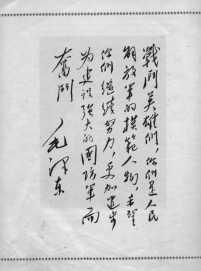 戰鬥英雄們，你們是人民
解放軍的模範人物，希望
你們繼續努力，更加進步
为建设強大的國防軍而
奮鬥
毛澤东